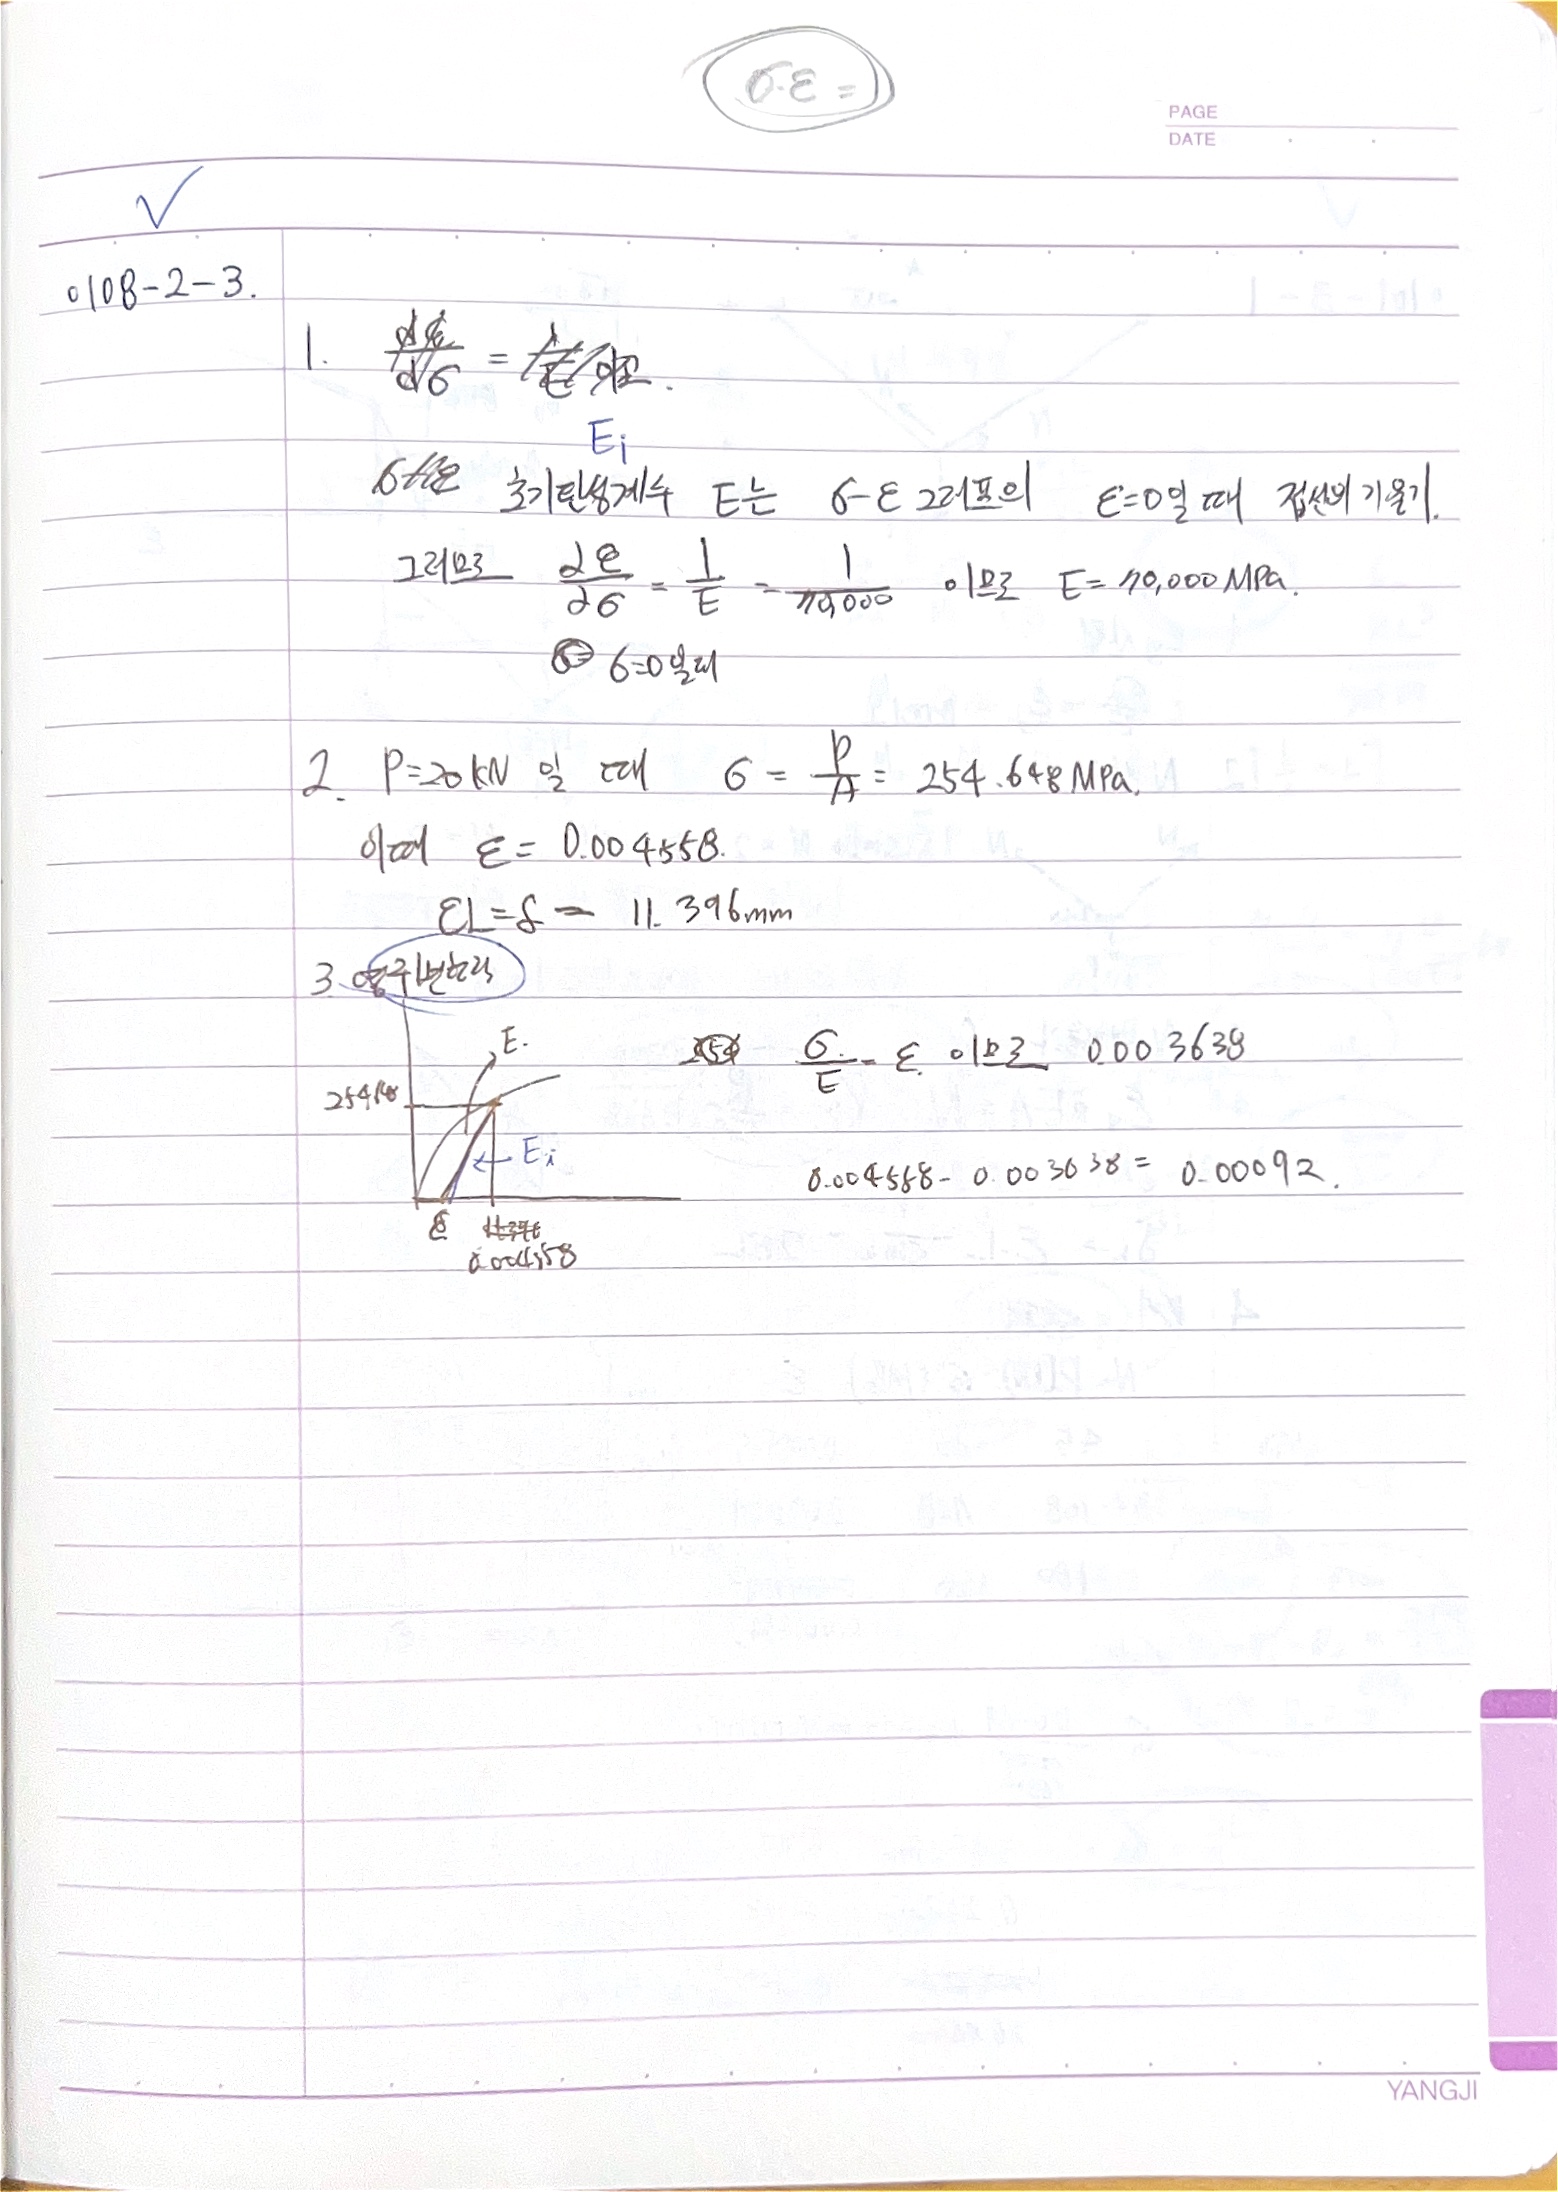 σ-ε =
PAGE
DATE
✓
0108-2-3.
1. dε/dσ = 1/E 이고.
Ei
초기탄성계수 E는 σ-ε 그래프의 ε=0일 때 접선의 기울기.
그러므로 dε/dσ = 1/E = 1/70,000 이므로 E = 70,000 MPa.
σ=0일때
2. P=20kN 일 때 σ = P/A = 254.648 MPa.
이때 ε = 0.004558.
εL = δ = 11.396mm
3. 영구변형률
E.
254.648
Ei
ε
0.004558
σ/E = ε 이므로 0.003638
0.004558 - 0.003638 = 0.00092.
YANGJI